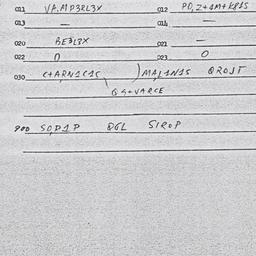 011 VA.MP3RL3X 012 PO, Z+4M+KR1S
013 — 014 —
020 BE3L3X 021 —
022 0 023 0
030 C+ARN1C1S MAJ1N1S QROST
QS+VARCE
900 SOP1P OGL SIROP